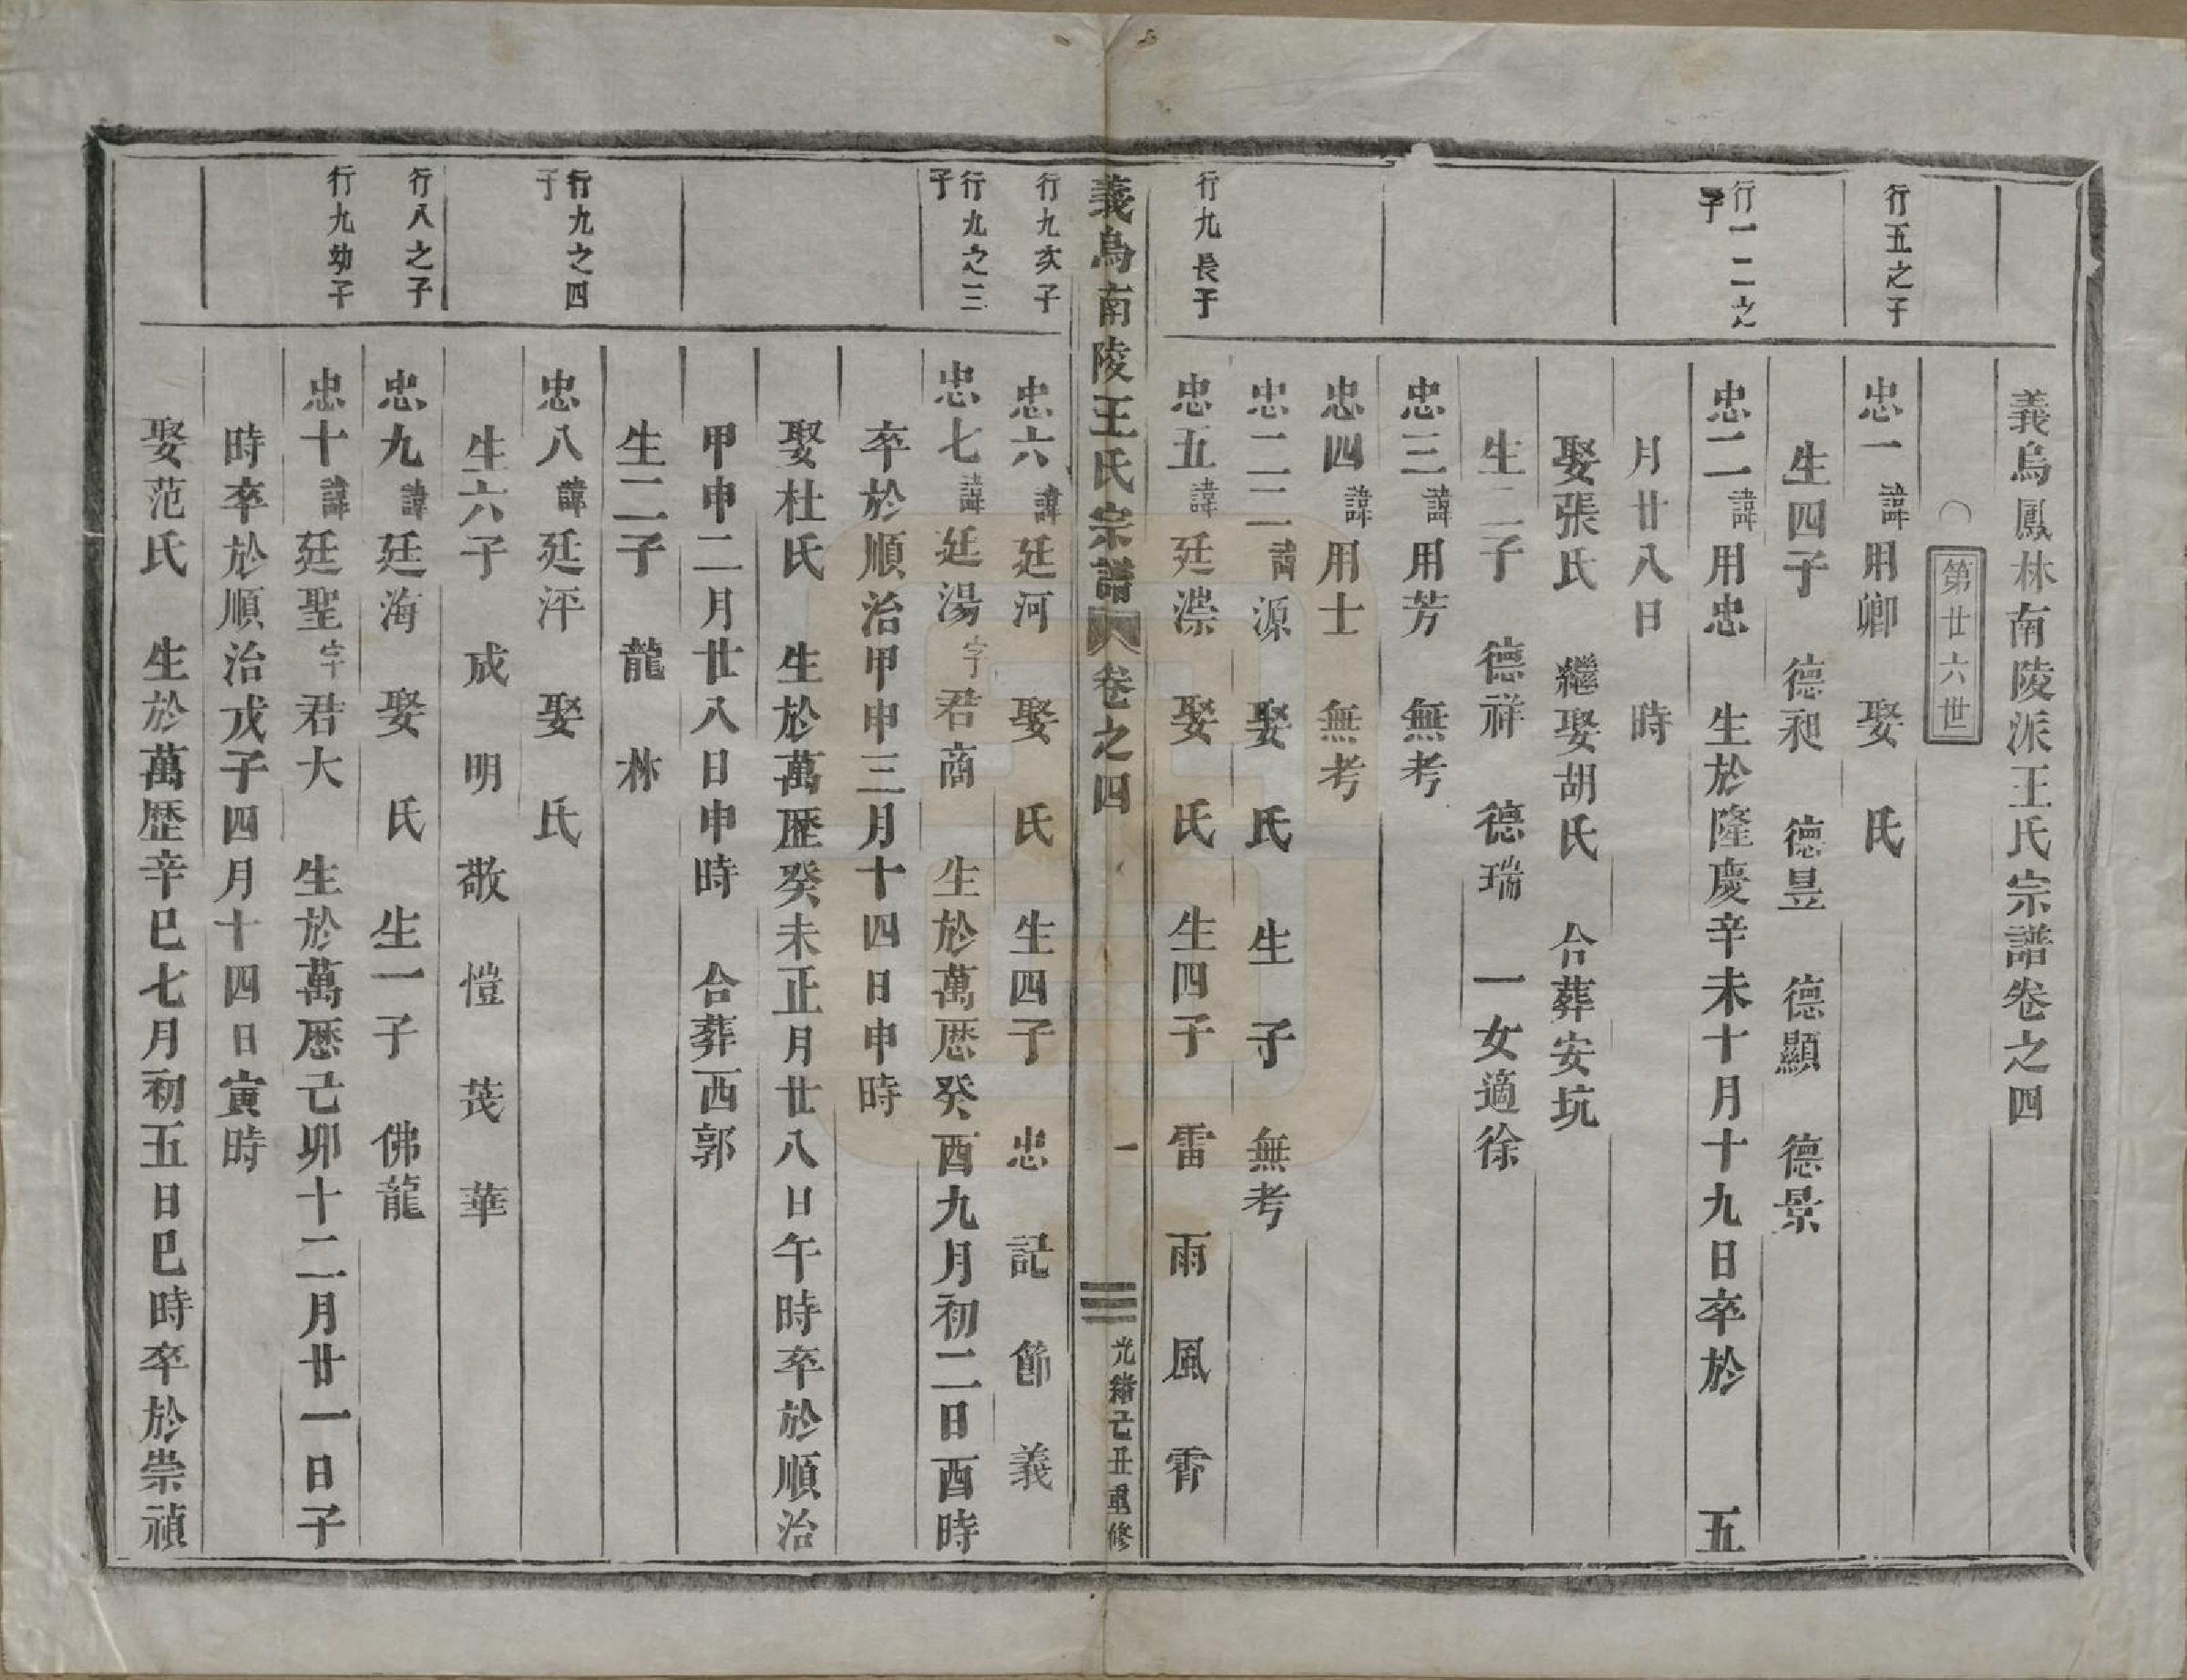 義烏鳳林南陵派王氏宗譜卷之四
第廿六世
行五之子
忠一諱用卿 娶 氏
生四子 德昶 德昱 德顯 德景
行一二之子
忠二諱用忠 生於隆慶辛未十月十九日卒於 五
月廿八日 時
娶張氏 繼娶胡氏 合葬安坑
生二子 德祥 德瑞 一女適徐
忠三諱用芳 無考
忠四諱用士 無考
忠二二諱源 娶 氏 生 子 無考
行九長子
忠五諱廷漴 娶 氏 生四子 雷 雨 風 霄
義烏南陵王氏宗譜 卷之四 一 光緒己丑重修
行九次子
忠六諱廷河 娶 氏 生四子 忠 記 節 義
行九之三子
忠七諱廷湯字君商 生於萬歷癸酉九月初二日酉時
卒於順治甲申三月十四日申時
娶杜氏 生於萬歷癸未正月廿八日午時卒於順治
甲申二月廿八日申時 合葬西郭
生二子 龍 林
行九之四子
忠八諱廷泙 娶 氏
生六子 成 明 敬 愷 茂 華
行八之子
忠九諱廷海 娶 氏 生一子 佛龍
行九幼子
忠十諱廷聖字君大 生於萬歷己卯十二月廿一日子
時卒於順治戊子四月十四日寅時
娶范氏 生於萬歷辛巳七月初五日巳時卒於崇禎